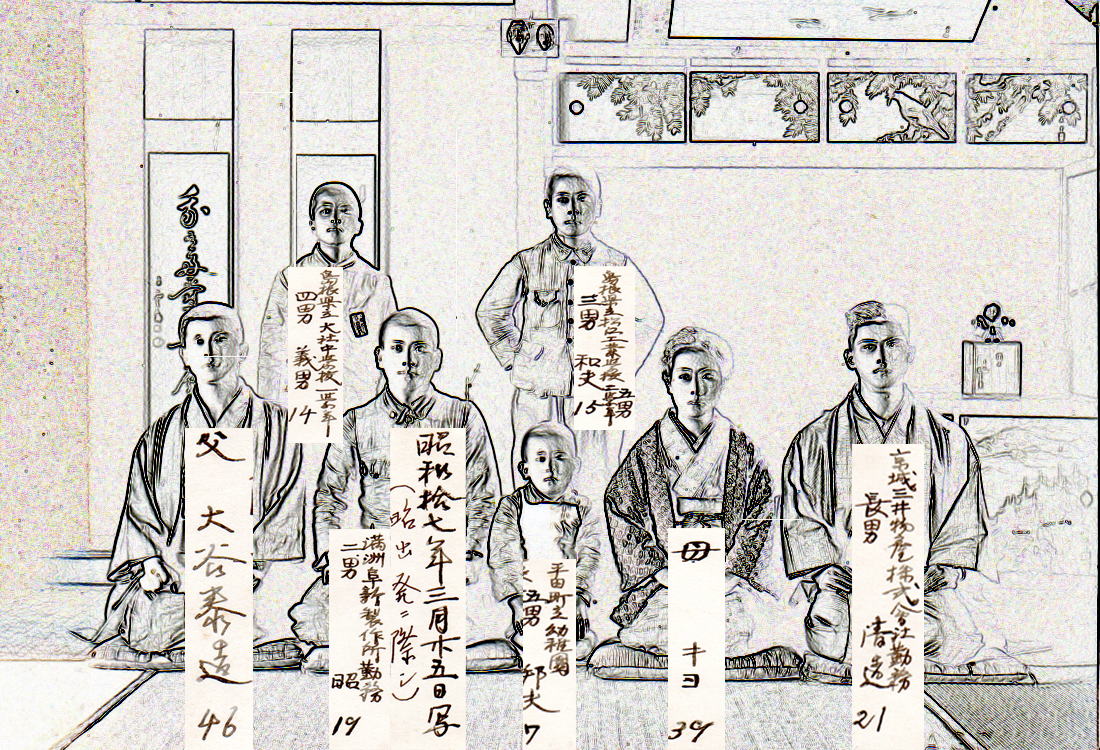 昭和拾七年三月廿五日写
(昭出発ニ際シ)
京城三井物産株式会社勤務
長男
清造
21
母
キヨ
39
島根県立松江工業学校二学年
三男
和夫
15
五男
平田町立幼稚園
五男
邦夫
7
満洲阜新製作所勤務
二男
昭
19
島根県立大社中学校一学年
四男
義男
14
父
大谷泰造
46